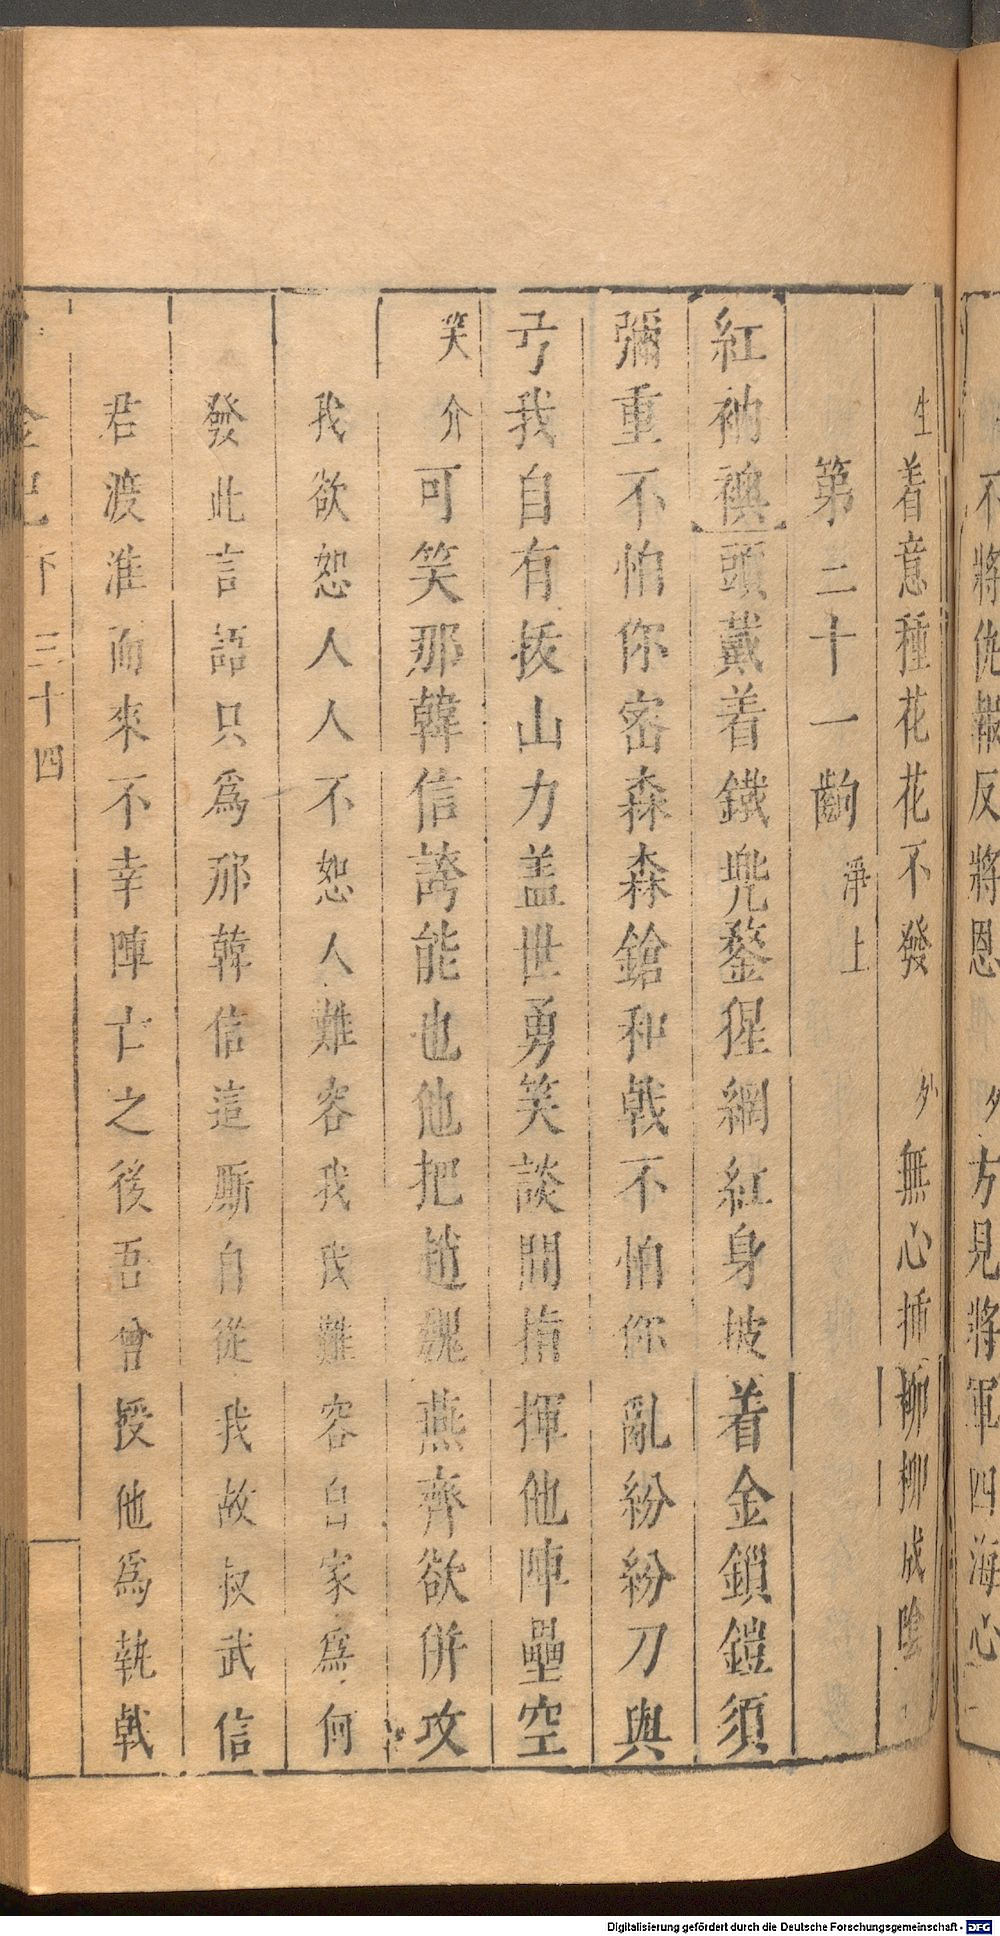 不將仇報反將恩 外方見將軍四海心
生 着意種花花不發 外 無心揷柳柳成陰
第二十一齣 淨上
紅衲襖 頭戴着鐵兠鍪猩綱紅身披着金鎖鎧須
彌重不怕你密森森鎗和戟不怕你亂紛紛刀與
弓我自有拔山力盖世勇笑談間指揮他陣壘空
笑介 可笑那韓信誇能也他把趙魏燕齊欲併攻
我欲恕人人不恕人難容我我難容自家爲何
發此言語只爲那韓信這厮自從我故叔武信
君渡淮而來不幸陣亡之後吾曾授他爲執戟
金記下 三十四
Digitalisierung gefördert durch die Deutsche Forschungsgemeinschaft - DFG